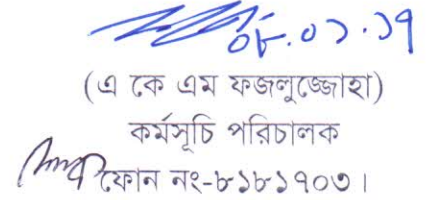 ০৮.০১.১৭
(এ কে এম ফজলুজ্জোহা)
কর্মসূচি পরিচালক
ফোন নং-৮১৮১৭০৩।